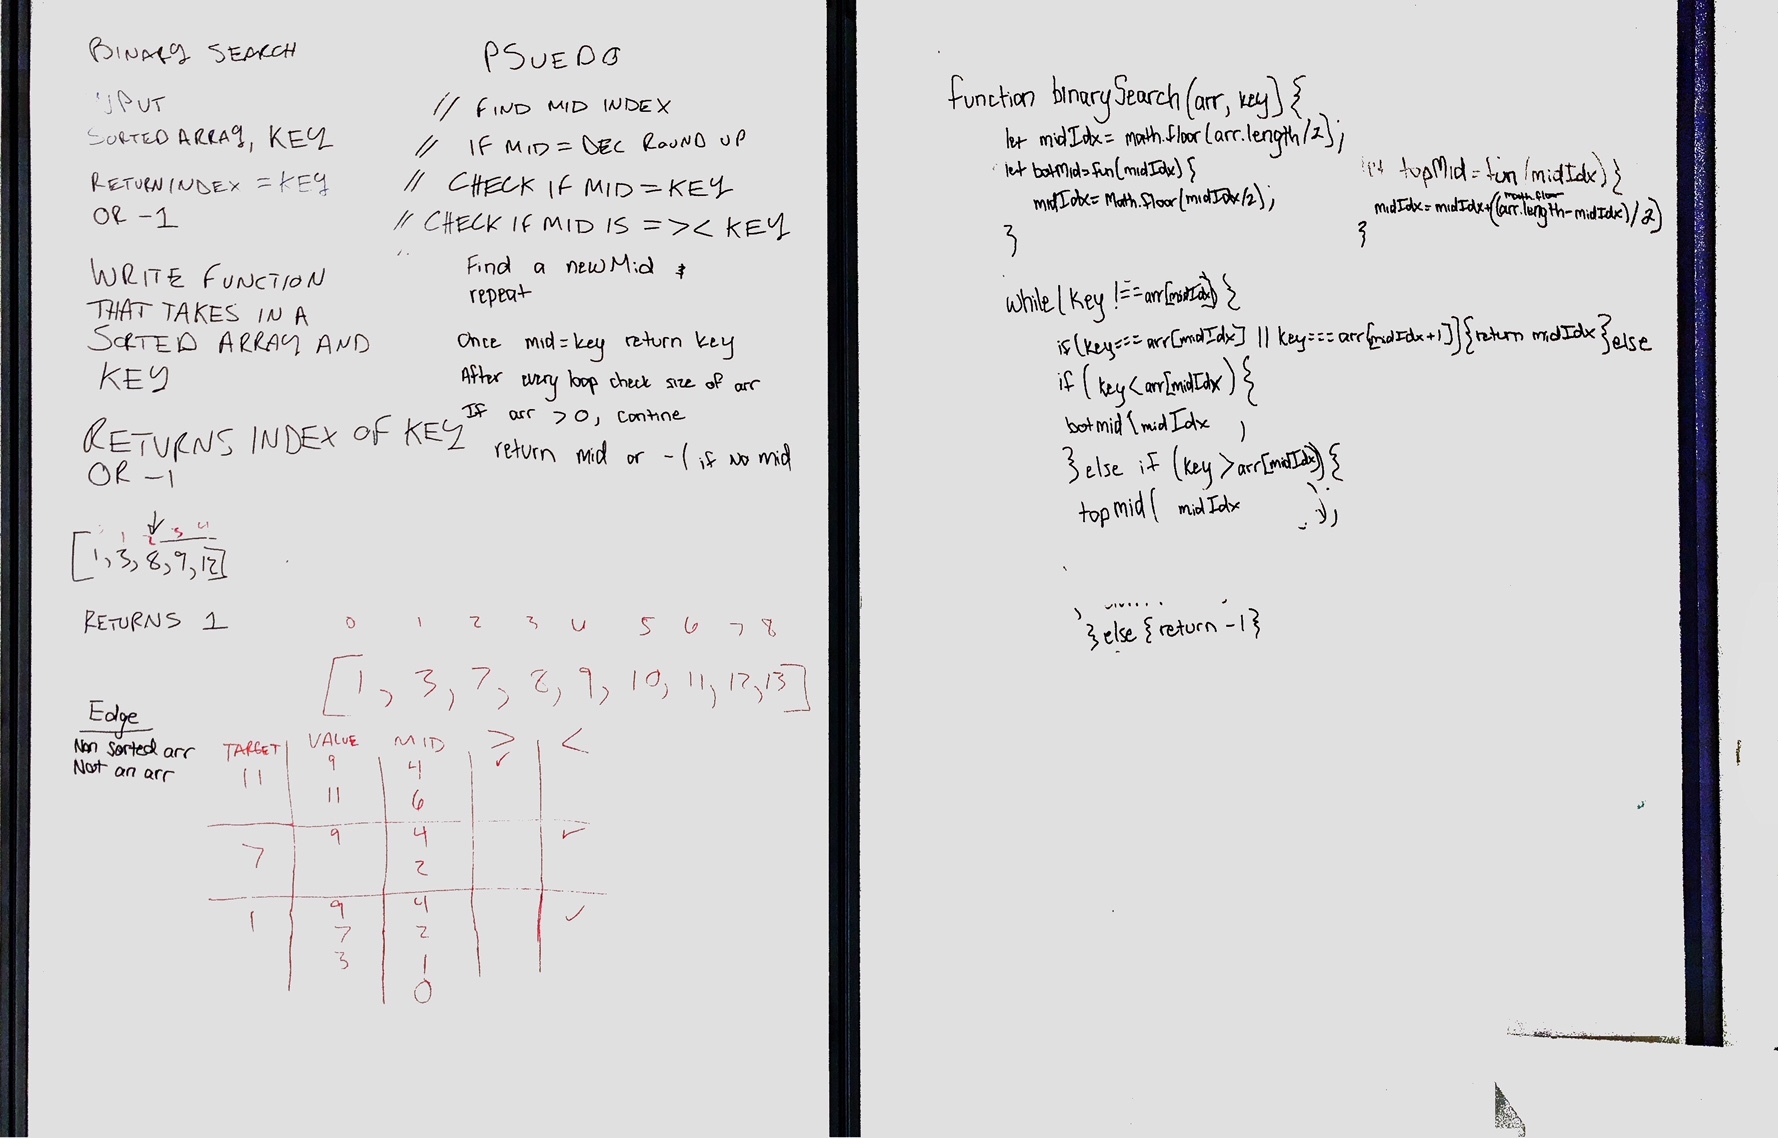 BINARY SEARCH
PSUEDO
SORTED ARRAY, KEY
RETURN INDEX = KEY
OR -1
WRITE FUNCTION
THAT TAKES IN A
SORTED ARRAY AND
KEY
RETURNS INDEX OF KEY
OR -1
// FIND MID INDEX
// IF MID = DEC ROUND UP
// CHECK IF MID = KEY
// CHECK IF MID IS = >< KEY
Find a new Mid &
repeat
Once mid = key return key
After every loop check size of arr
If arr > 0, contine
return mid or -1 if no mid
1 2 3 4
[1, 3, 8, 9, 12]
RETURNS 1
0 1 2 3 4 5 6 7 8
[1, 3, 7, 8, 9, 10, 11, 12, 13]
Edge
Non sorted arr
Not an arr
TARGET VALUE MID > <
11 9 4 ✓
11 6
7 9 4 ✓
2
1 9 4 ✓
7 2
3 1
0
function binarySearch(arr, key) {
let midIdx = math.floor(arr.length/2);
let botMid = fun(midIdx) {
midIdx = Math.floor(midIdx/2);
}
topMid = fun(midIdx) {
math.floor
midIdx = midIdx + ((arr.length - midIdx)/2)
}
while(key !== arr[midIdx]) {
if(key === arr[midIdx] || key === arr[midIdx+1]) {return midIdx} else
if (key < arr[midIdx) {
botmid(midIdx )
} else if (key > arr[midIdx]) {
topmid( midIdx );
} else {return -1}